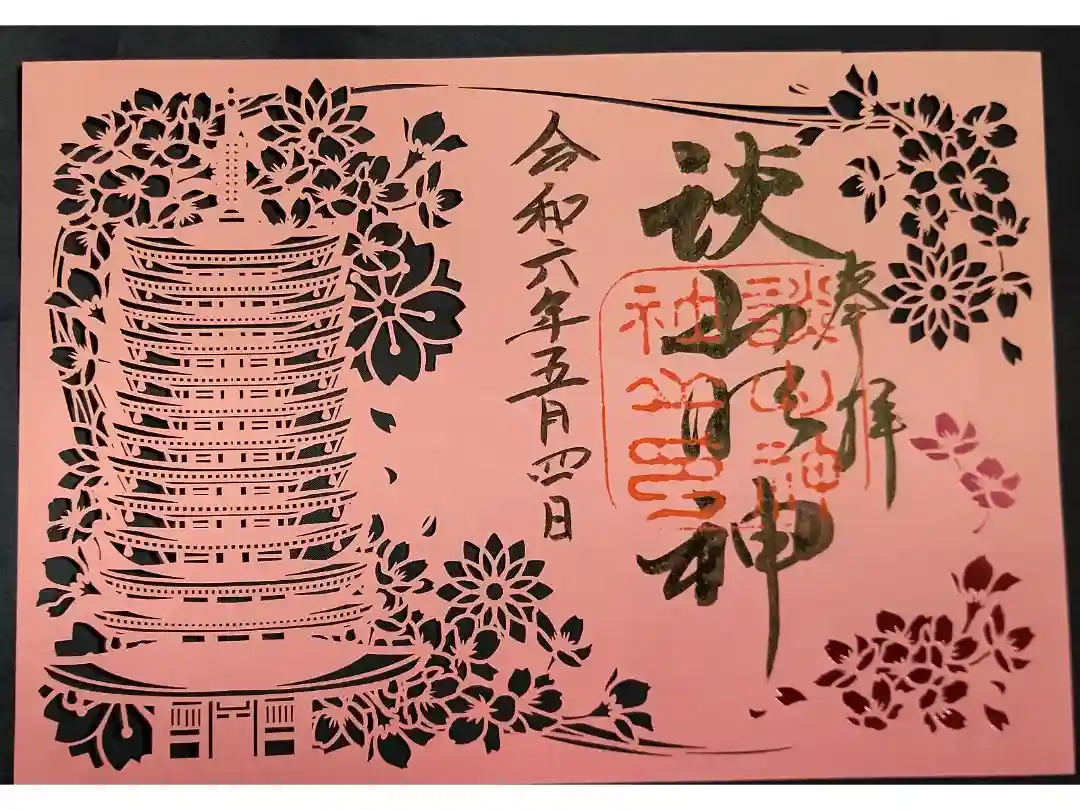 奉拝
談山明神
談山神
社之印
令和六年五月四日